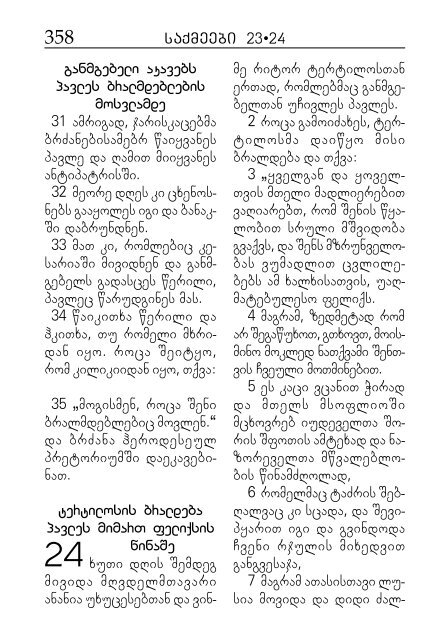 358 საქმეები 23•24
განმგებელი აკავებს
პავლეს ბრალმდებლების
მოსვლამდე
31 ამრიგად, ჯარისკაცებმა
ბრძანებისამებრ წაიყვანეს
პავლე და ღამით მიიყვანეს
ანტიპატრისში.
32 მეორე დღეს კი ცხენოს-
ნებს გააყოლეს იგი და ბანაკ-
ში დაბრუნდნენ.
33 მათ კი, რომლებიც კე-
სარიაში მივიდნენ და განმ-
გებელს გადასცეს წერილი,
პავლეც წარუდგინეს მას.
34 წაიკითხა წერილი და
ჰკითხა, თუ რომელი მხრი-
დან იყო. როცა შეიტყო,
რომ კილიკიიდან იყო, თქვა:
35 „მოგისმენ, როცა შენი
ბრალმდებლებიც მოვლენ.“
და ბრძანა ჰეროდესეულ
პრეტორიუმში დაეკავები-
ნათ.
ტერტილოსის ბრალდება
პავლეს მიმართ ფელიქსის
წინაშე
24 ხუთი დღის შემდეგ
მივიდა მღვდელმთავარი
ანანია უხუცესებთან და ვინ-
მე რიტორ ტერტილოსთან
ერთად, რომლებმაც განმგე-
ბელთან უჩივლეს პავლეს.
2 როცა გამოიძახეს, ტერ-
ტილოსმა დაიწყო მისი
ბრალდება და თქვა:
3 „ყველგან და ყოველ-
თვის მთელი მადლიერებით
ვაღიარებთ, რომ შენის წყა-
ლობით სრული მშვიდობა
გვაქვს, და შენს მზრუნველო-
ბას ვუმადლით ცვლილე-
ბებს ამ ხალხისათვის, უაღ-
მატებულესო ფელიქს.
4 მაგრამ, ზედმეტად რომ
არ შეგაწუხოთ, გთხოვთ, მოის-
მინო მოკლედ ნათქვამი შენთ-
ვის ჩვეული მოთმინებით.
5 ეს კაცი ვცანით ჭირად
და მთელს მსოფლიოში
მცხოვრებ იუდეველთა შო-
რის შფოთის ამტეხად და ნა-
ზორეველთა მწვალებლო-
ბის წინამძღოლად,
6 რომელმაც ტაძრის შებ-
ღალვაც კი სცადა, და შევი-
პყარით იგი და გვინდოდა
ჩვენი რჯულის მიხედვით
განგვესაჯა,
7 მაგრამ ათასისთავი ლუ-
სია მოვიდა და დიდი ძალ-